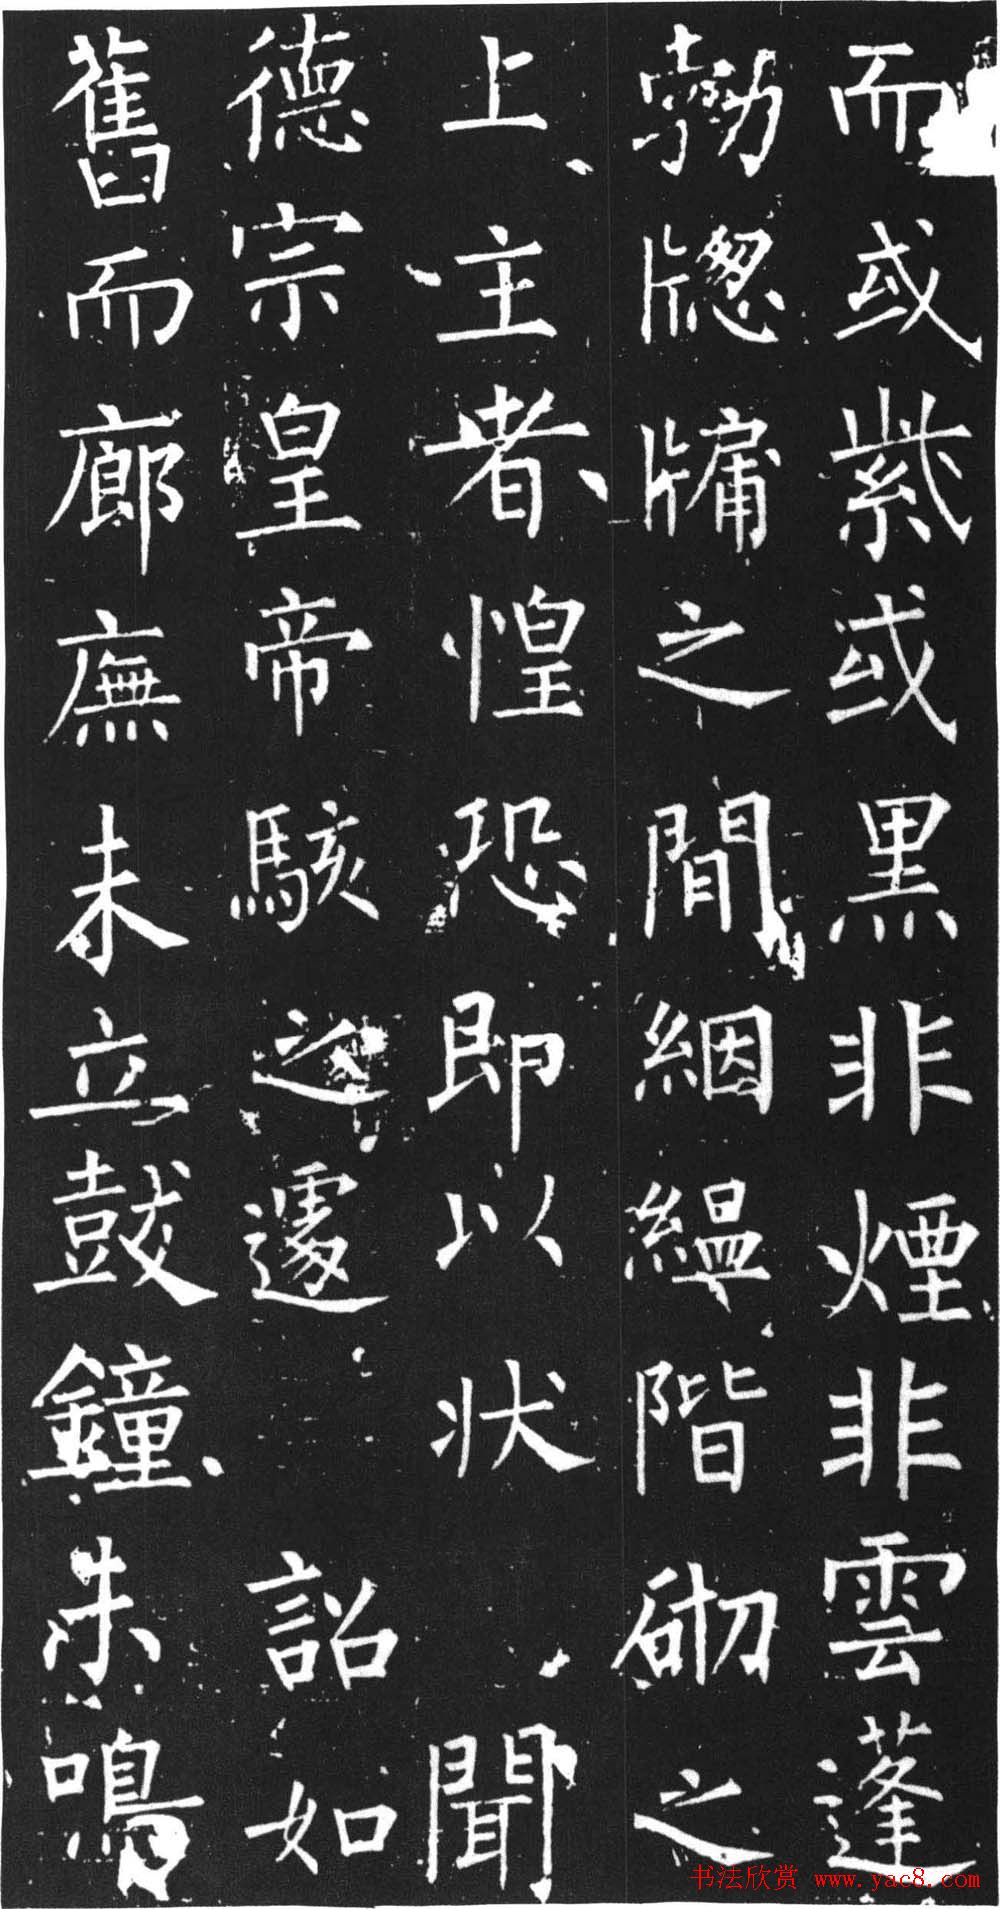 而或紫或黑非煙非雲蓬
勃牎牖之間絪縕階砌之
上主者惶恐即以状聞
德宗皇帝駭之遽詔如
舊而廊廡未立鼓鐘未鳴
书法欣赏 www.yac8.com